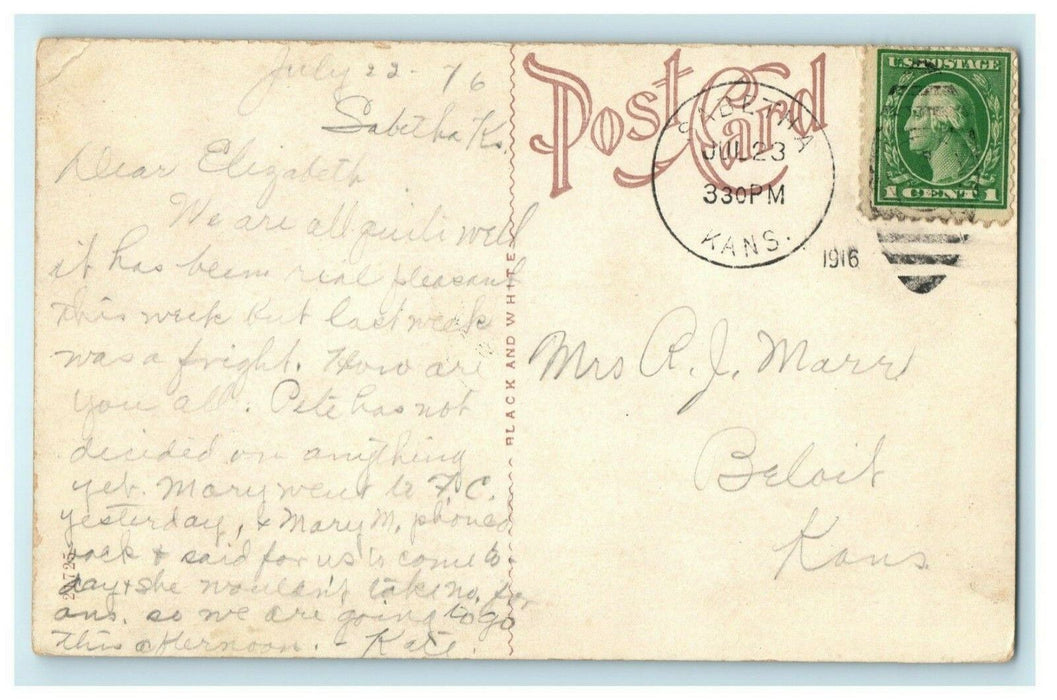 July 22 - 16
Sabetha Ks.
Dear Elizabeth
We are all quite well
it has been real pleasant
this week but last week
was a fright. How are
you all. Pete has not
decided on anything
yet. Mary went to F.C.
yesterday, & Mary M. phoned
back & said for us to come to-
day & she wouldn't take no. for
ans. so we are going to go
this afternoon. - Kate.
BLACK AND WHITE
Post Card
SABETHA
JUL 23
330PM
KANS.
1916
U.S. POSTAGE
1 CENT 1
Mrs R. J. Marr
Beloit
Kans